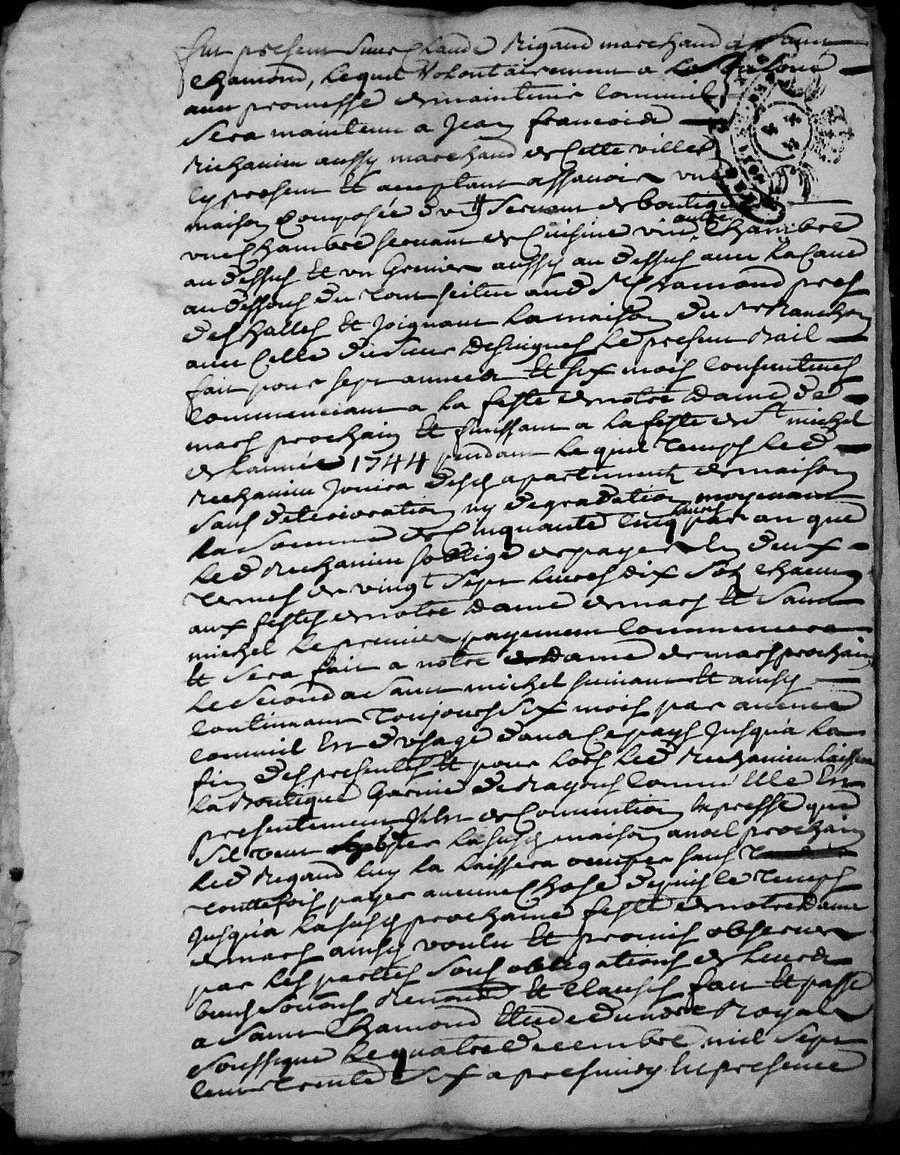 fut present sieur Claude Rigaud marchand a Saint
Chamond, lequel volontairement a
avec promesse de maintenir comme il
sera maintenu a Jean francois de
Richanin aussy marchand de cette ville
cy present et acceptant assavoir une
maison composée d'un servant de boutique
une chambre servant de cuisine une autre chambre
au dessus et un grenier aussy au dessus avec la cave
au dessous du tout scitué aud St Chamond pres
des halles et joignant la maison du sr Planchon
avec celle du sieur le present bail
fait pour sept années et six mois consecutives
commenciant a la feste de notre dame de
mars prochain et finissant a la feste de St michel
de l'année 1744 pendant le quel temps led
Richanin jouira desd apartements de maison
sans deterioration ny degradation moyenant
la somme de cinquante cinq livres par an que
led Richanin soblige de payer en deux
termes de vingt sept livres dix sols chacun
aux festes de notre dame de mars et saint
michel le premier payement commencera
et sera fait a notre dame de mars prochain
le second a saint michel suivant et ainsy
continuant toujours six mois par avance
comme il est d'usage dans ce pays jusqu'a la
fin des presentes et pour lors led Richanin laissera
la boutique garnie de rayons comme elle est
presentement Il est de convention expresse que
sil veut habiter lasusd maison a noel prochain
led Rigaud luy la laissera occuper sans
touttefois payer aucune chose depuis le temps
jusqu'a lasusd prochaine feste de notre dame
de mars ainsy voulu et promis observer
par les parties sous obligations de leurs
biens soumis renoncé et clauses fait et passé
a saint Chamond etude du nore Royal
soussigné le quatre decembre mil sept
cent trente six apres midy en presence